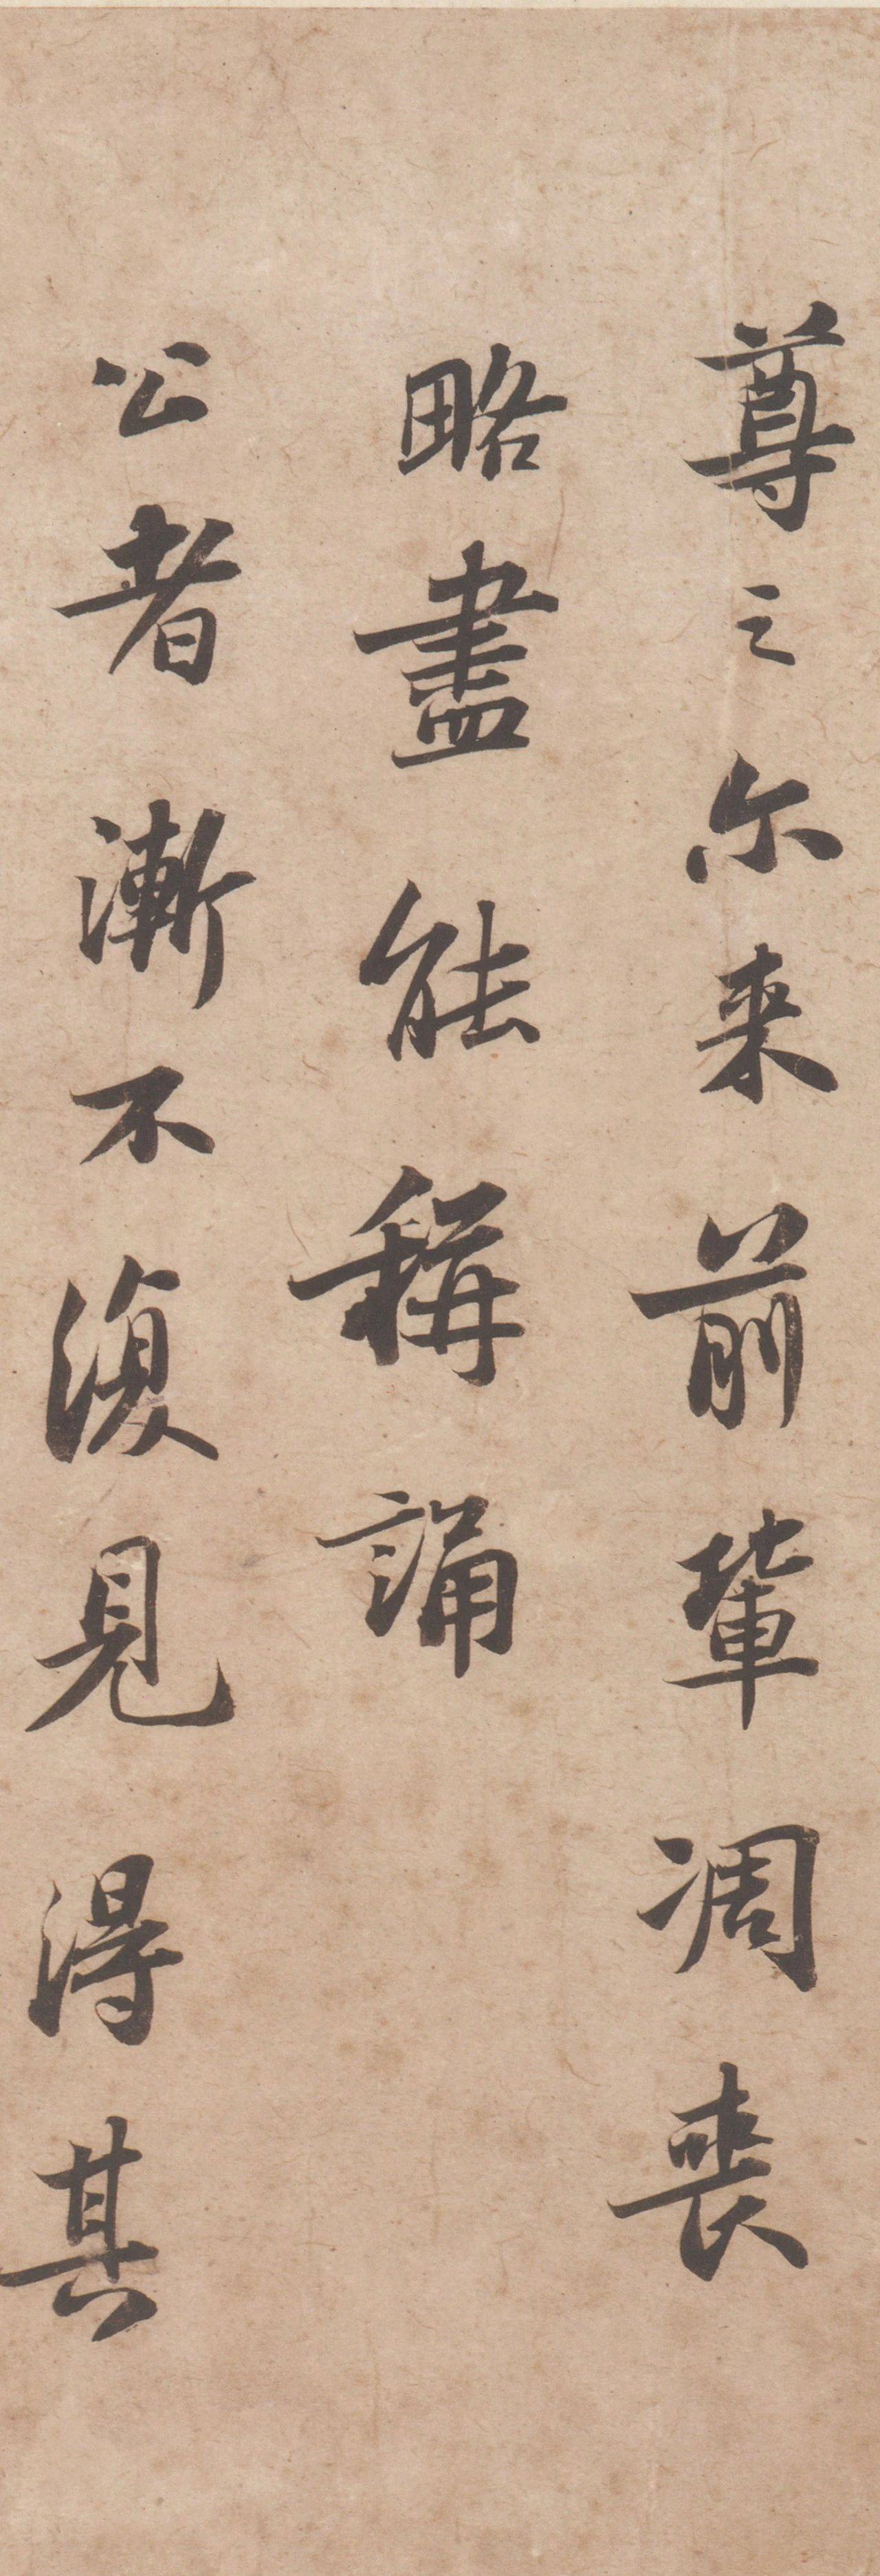 尊之尔来前輩凋喪
略盡能稱誦
公者漸不復見得其